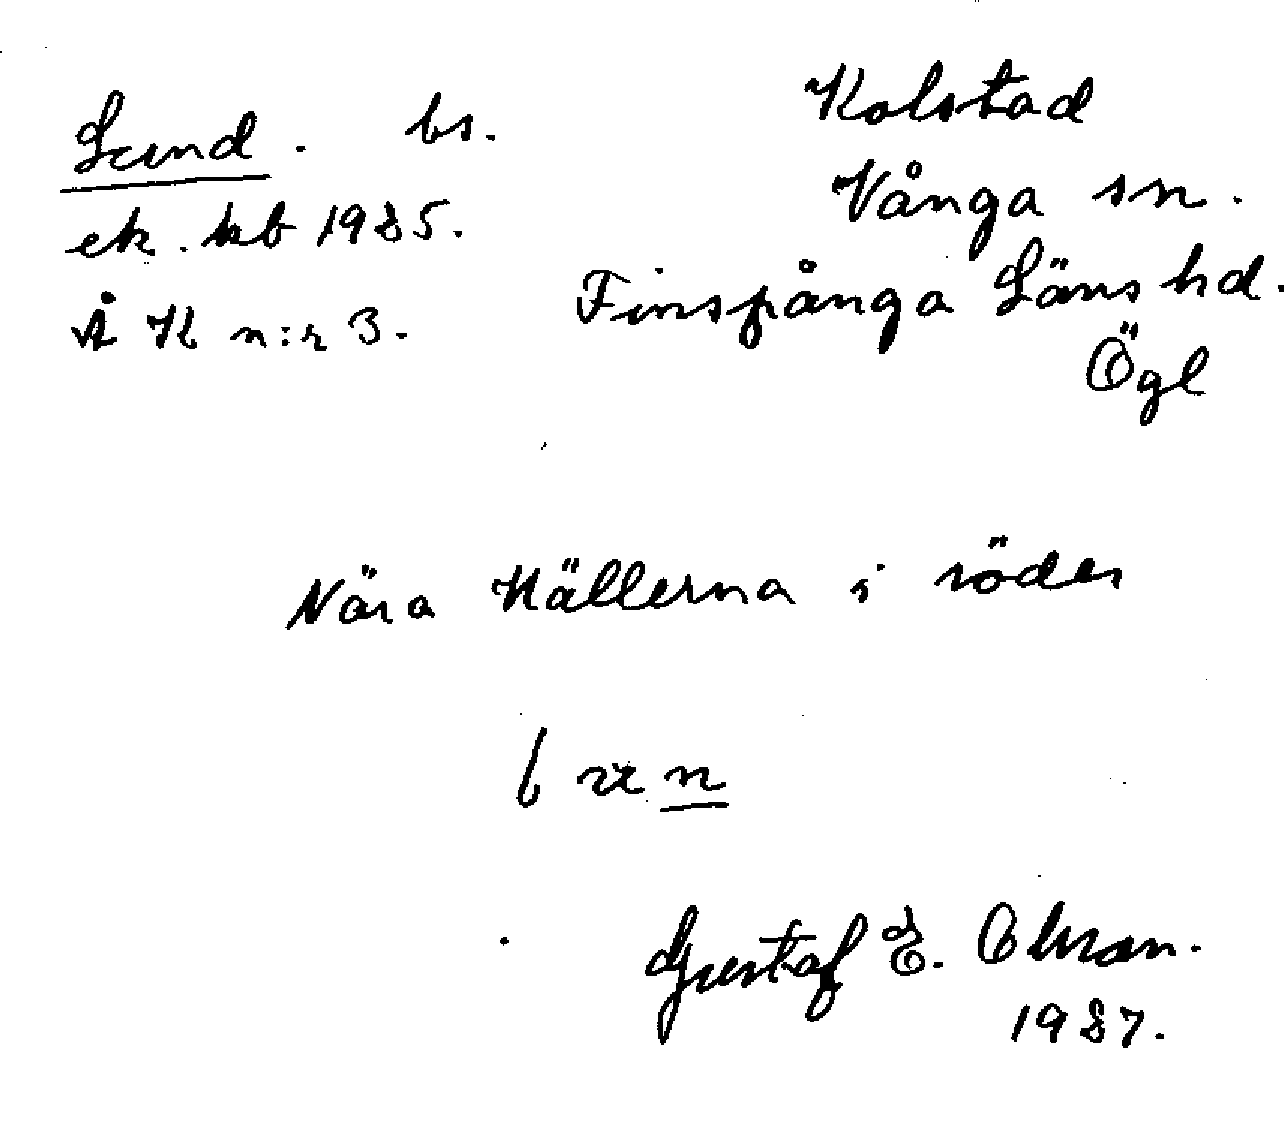 Lund. bs.
ek. kb 1985.
Å K n:r 3.
Kolstad
Vånga sn.
Finspånga Läns hd.
Ögl
Nära Källerna i söder
Gustaf E. Olsson.
1987.